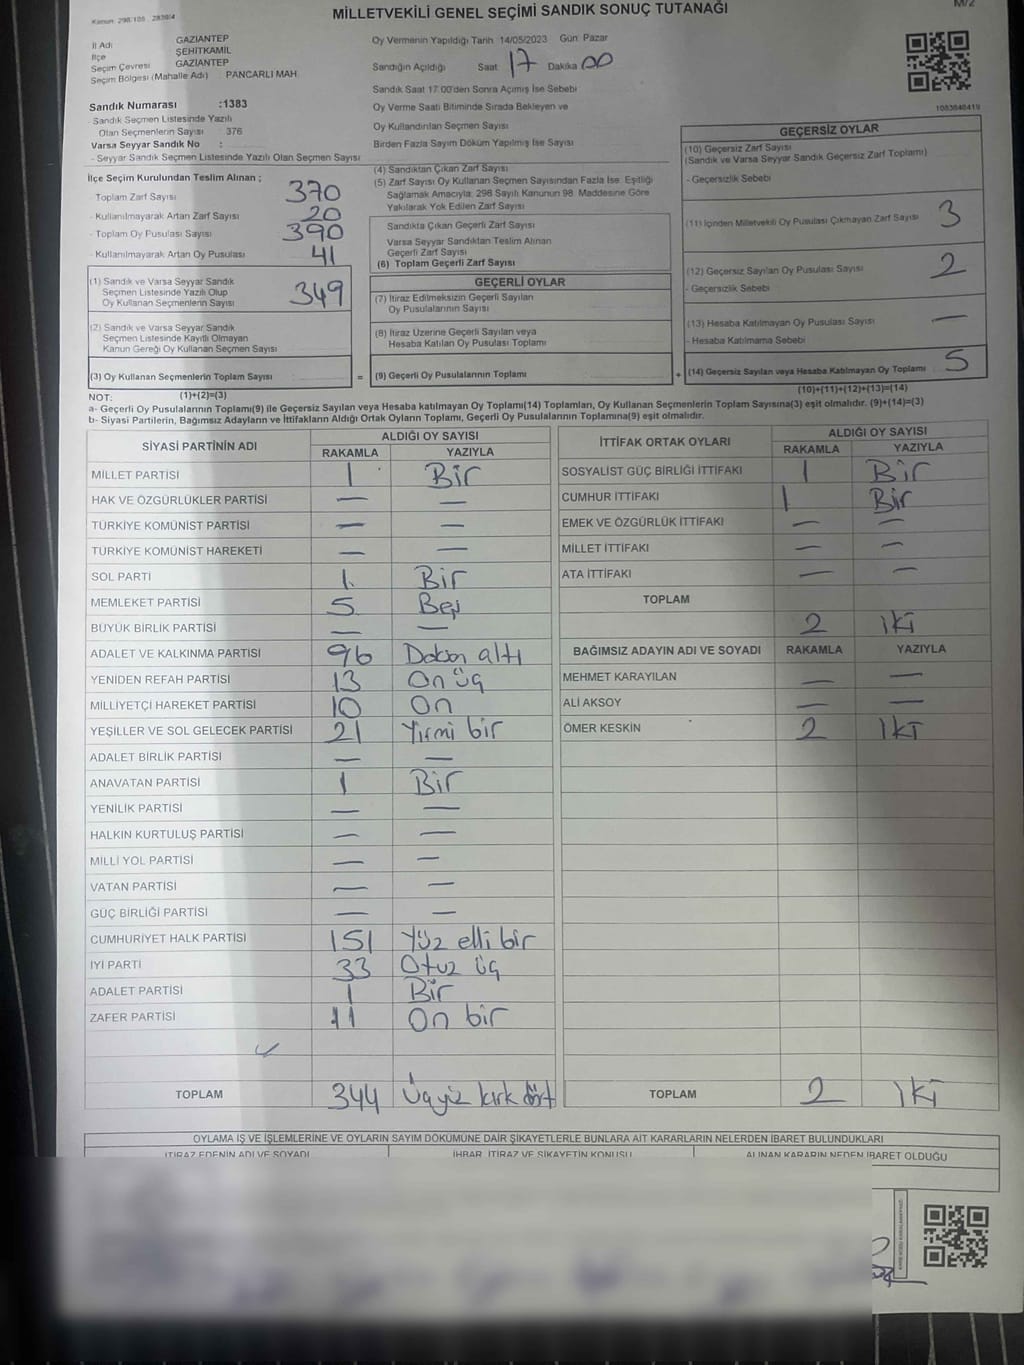 Kanun: 298/105
MİLLETVEKİLİ GENEL SEÇİMİ SANDIK SONUÇ TUTANAĞI
M/2
İl Adı GAZİANTEP
İlçe ŞEHİTKAMİL
Seçim Çevresi GAZİANTEP
Seçim Bölgesi (Mahalle Adı) PANCARLI MAH.
Oy Vermenin Yapıldığı Tarih 14/05/2023 Gün: Pazar
Sandığın Açıldığı Saat 17 Dakika 00
Sandık Saat 17:00'den Sonra Açılmış İse Sebebi
Sandık Numarası :1383
- Sandık Seçmen Listesinde Yazılı
Olan Seçmenlerin Sayısı 376
Varsa Seyyar Sandık No :
- Seyyar Sandık Seçmen Listesinde Yazılı Olan Seçmen Sayısı
Oy Verme Saati Bitiminde Sırada Bekleyen ve
Oy Kullandırılan Seçmen Sayısı
Birden Fazla Sayım Döküm Yapılmış İse Sayısı
İlçe Seçim Kurulundan Teslim Alınan ;
- Toplam Zarf Sayısı 370
- Kullanılmayarak Artan Zarf Sayısı 20
- Toplam Oy Pusulası Sayısı 390
- Kullanılmayarak Artan Oy Pusulası 41
(1) Sandık ve Varsa Seyyar Sandık
Seçmen Listesinde Yazılı Olup
Oy Kullanan Seçmenlerin Sayısı 349
(2) Sandık ve Varsa Seyyar Sandık
Seçmen Listesinde Kayıtlı Olmayan
Kanun Gereği Oy Kullanan Seçmen Sayısı
(3) Oy Kullanan Seçmenlerin Toplam Sayısı =
(4) Sandıktan Çıkan Zarf Sayısı
(5) Zarf Sayısı Oy Kullanan Seçmen Sayısından Fazla İse, Eşitliği
Sağlamak Amacıyla; 298 Sayılı Kanunun 98. Maddesine Göre
Yakılarak Yok Edilen Zarf Sayısı
Sandıkta Çıkan Geçerli Zarf Sayısı
Varsa Seyyar Sandıktan Teslim Alınan
Geçerli Zarf Sayısı
(6) Toplam Geçerli Zarf Sayısı
GEÇERLİ OYLAR
(7) İtiraz Edilmeksizin Geçerli Sayılan
Oy Pusulalarının Sayısı
(8) İtiraz Üzerine Geçerli Sayılan veya
Hesaba Katılan Oy Pusulası Toplamı
(9) Geçerli Oy Pusulalarının Toplamı +
1083848419
GEÇERSİZ OYLAR
(10) Geçersiz Zarf Sayısı
(Sandık ve Varsa Seyyar Sandık Geçersiz Zarf Toplamı)
- Geçersizlik Sebebi
(11) İçinden Milletvekili Oy Pusulası Çıkmayan Zarf Sayısı 3
(12) Geçersiz Sayılan Oy Pusulası Sayısı 2
- Geçersizlik Sebebi
(13) Hesaba Katılmayan Oy Pusulası Sayısı —
- Hesaba Katılmama Sebebi
(14) Geçersiz Sayılan veya Hesaba Katılmayan Oy Toplamı 5
NOT: (1)+(2)=(3) (10)+(11)+(12)+(13)=(14)
a- Geçerli Oy Pusulalarının Toplamı(9) ile Geçersiz Sayılan veya Hesaba katılmayan Oy Toplamı(14) Toplamları, Oy Kullanan Seçmenlerin Toplam Sayısına(3) eşit olmalıdır. (9)+(14)=(3)
b- Siyasi Partilerin, Bağımsız Adayların ve İttifakların Aldığı Ortak Oyların Toplamı, Geçerli Oy Pusulalarının Toplamına(9) eşit olmalıdır.
SİYASİ PARTİNİN ADI ALDIĞI OY SAYISI
RAKAMLA YAZIYLA
MİLLET PARTİSİ 1 Bir
HAK VE ÖZGÜRLÜKLER PARTİSİ — —
TÜRKİYE KOMÜNİST PARTİSİ — —
TÜRKİYE KOMÜNİST HAREKETİ — —
SOL PARTİ 1 Bir
MEMLEKET PARTİSİ 5 Beş
BÜYÜK BİRLİK PARTİSİ — —
ADALET VE KALKINMA PARTİSİ 96 Doksan altı
YENİDEN REFAH PARTİSİ 13 On üç
MİLLİYETÇİ HAREKET PARTİSİ 10 On
YEŞİLLER VE SOL GELECEK PARTİSİ 21 Yirmi bir
ADALET BİRLİK PARTİSİ — —
ANAVATAN PARTİSİ 1 Bir
YENİLİK PARTİSİ — —
HALKIN KURTULUŞ PARTİSİ — —
MİLLİ YOL PARTİSİ — —
VATAN PARTİSİ — —
GÜÇ BİRLİĞİ PARTİSİ — —
CUMHURİYET HALK PARTİSİ 151 Yüz elli bir
İYİ PARTİ 33 Otuz üç
ADALET PARTİSİ 1 Bir
ZAFER PARTİSİ 11 On bir
TOPLAM 344 Üçyüz kırk dört
İTTİFAK ORTAK OYLARI ALDIĞI OY SAYISI
RAKAMLA YAZIYLA
SOSYALİST GÜÇ BİRLİĞİ İTTİFAKI 1 Bir
CUMHUR İTTİFAKI 1 Bir
EMEK VE ÖZGÜRLÜK İTTİFAKI — —
MİLLET İTTİFAKI — —
ATA İTTİFAKI — —
TOPLAM 2 İki
BAĞIMSIZ ADAYIN ADI VE SOYADI RAKAMLA YAZIYLA
MEHMET KARAYILAN — —
ALİ AKSOY — —
ÖMER KESKİN 2 İki
TOPLAM 2 İki
OYLAMA İŞ VE İŞLEMLERİNE VE OYLARIN SAYIM DÖKÜMÜNE DAİR ŞİKAYETLERLE BUNLARA AİT KARARLARIN NELERDEN İBARET BULUNDUKLARI
İTİRAZ EDENİN ADI VE SOYADI İHBAR, İTİRAZ VE ŞİKAYETİN KONUSU ALINAN KARARIN NEDEN İBARET OLDUĞU